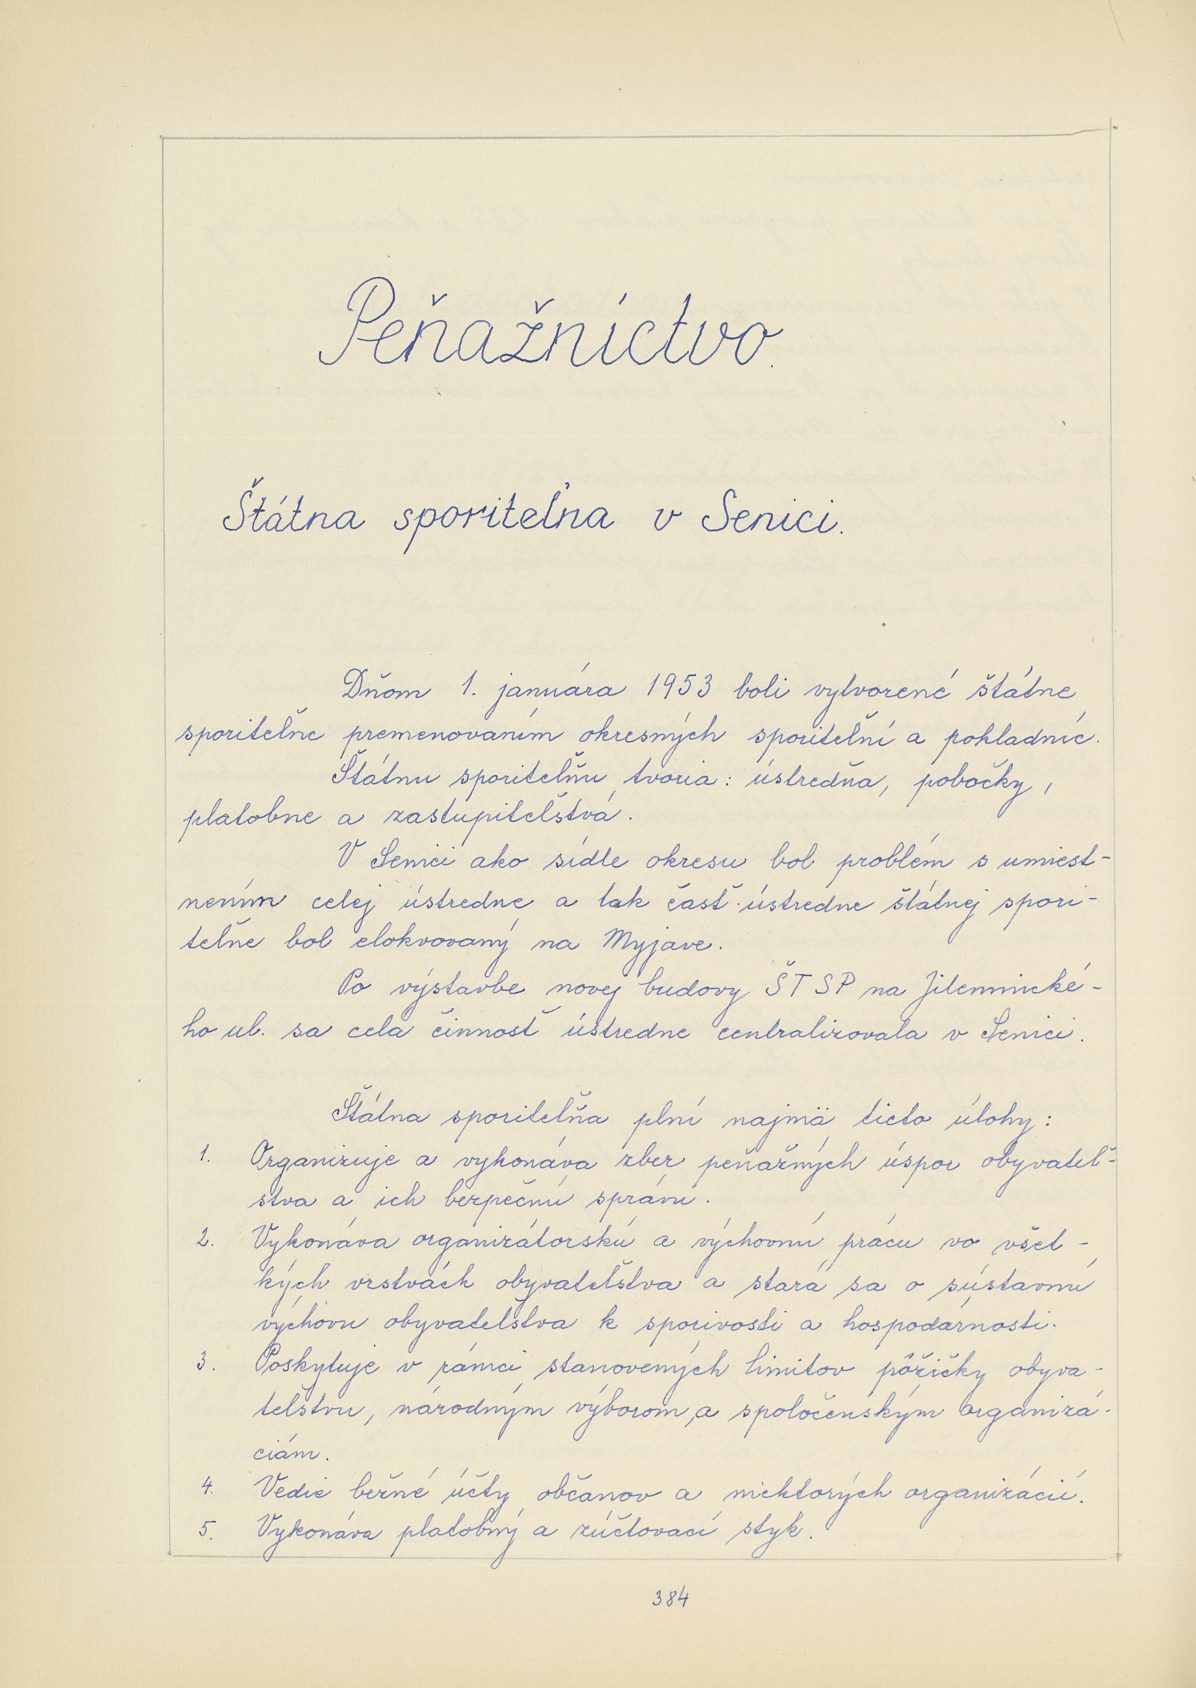 Peňažníctvo.
Štátna sporiteľňa v Senici.
Dňom 1. januára 1953 boli vytvorené štátne
sporiteľne premenovaním okresných sporiteľní a pokladníc.
Štátnu sporiteľňu tvoria: ústredňa, pobočky,
platobne a zastupiteľstvá.
V Senici ako sídle okresu bol problém s umiest-
nením celej ústredne a tak časť ústredne štátnej spori-
teľne bol elokvovaný na Myjave.
Po výstavbe novej budovy ŠTSP na Jilemnické-
ho ul. sa cela činnosť ústredne centralizovala v Senici.
Štátna sporiteľňa plní najmä tieto úlohy:
1. Organizuje a vykonáva zber peňažných úspor obyvateľ-
stva a ich bezpečnú správu.
2. Vykonáva organizátorskú a výchovnú prácu vo všet-
kých vrstvách obyvateľstva a stará sa o sústavnú
výchovu obyvateľstva k sporivosti a hospodárnosti.
3. Poskytuje v rámci stanovených limitov pôžičky obyva-
teľstvu, národným výborom a spoločenským organizá-
ciám.
4. Vedie bežné účty občanov a niektorých organizácií.
5. Vykonáva platobný a zúčtovací styk.
384